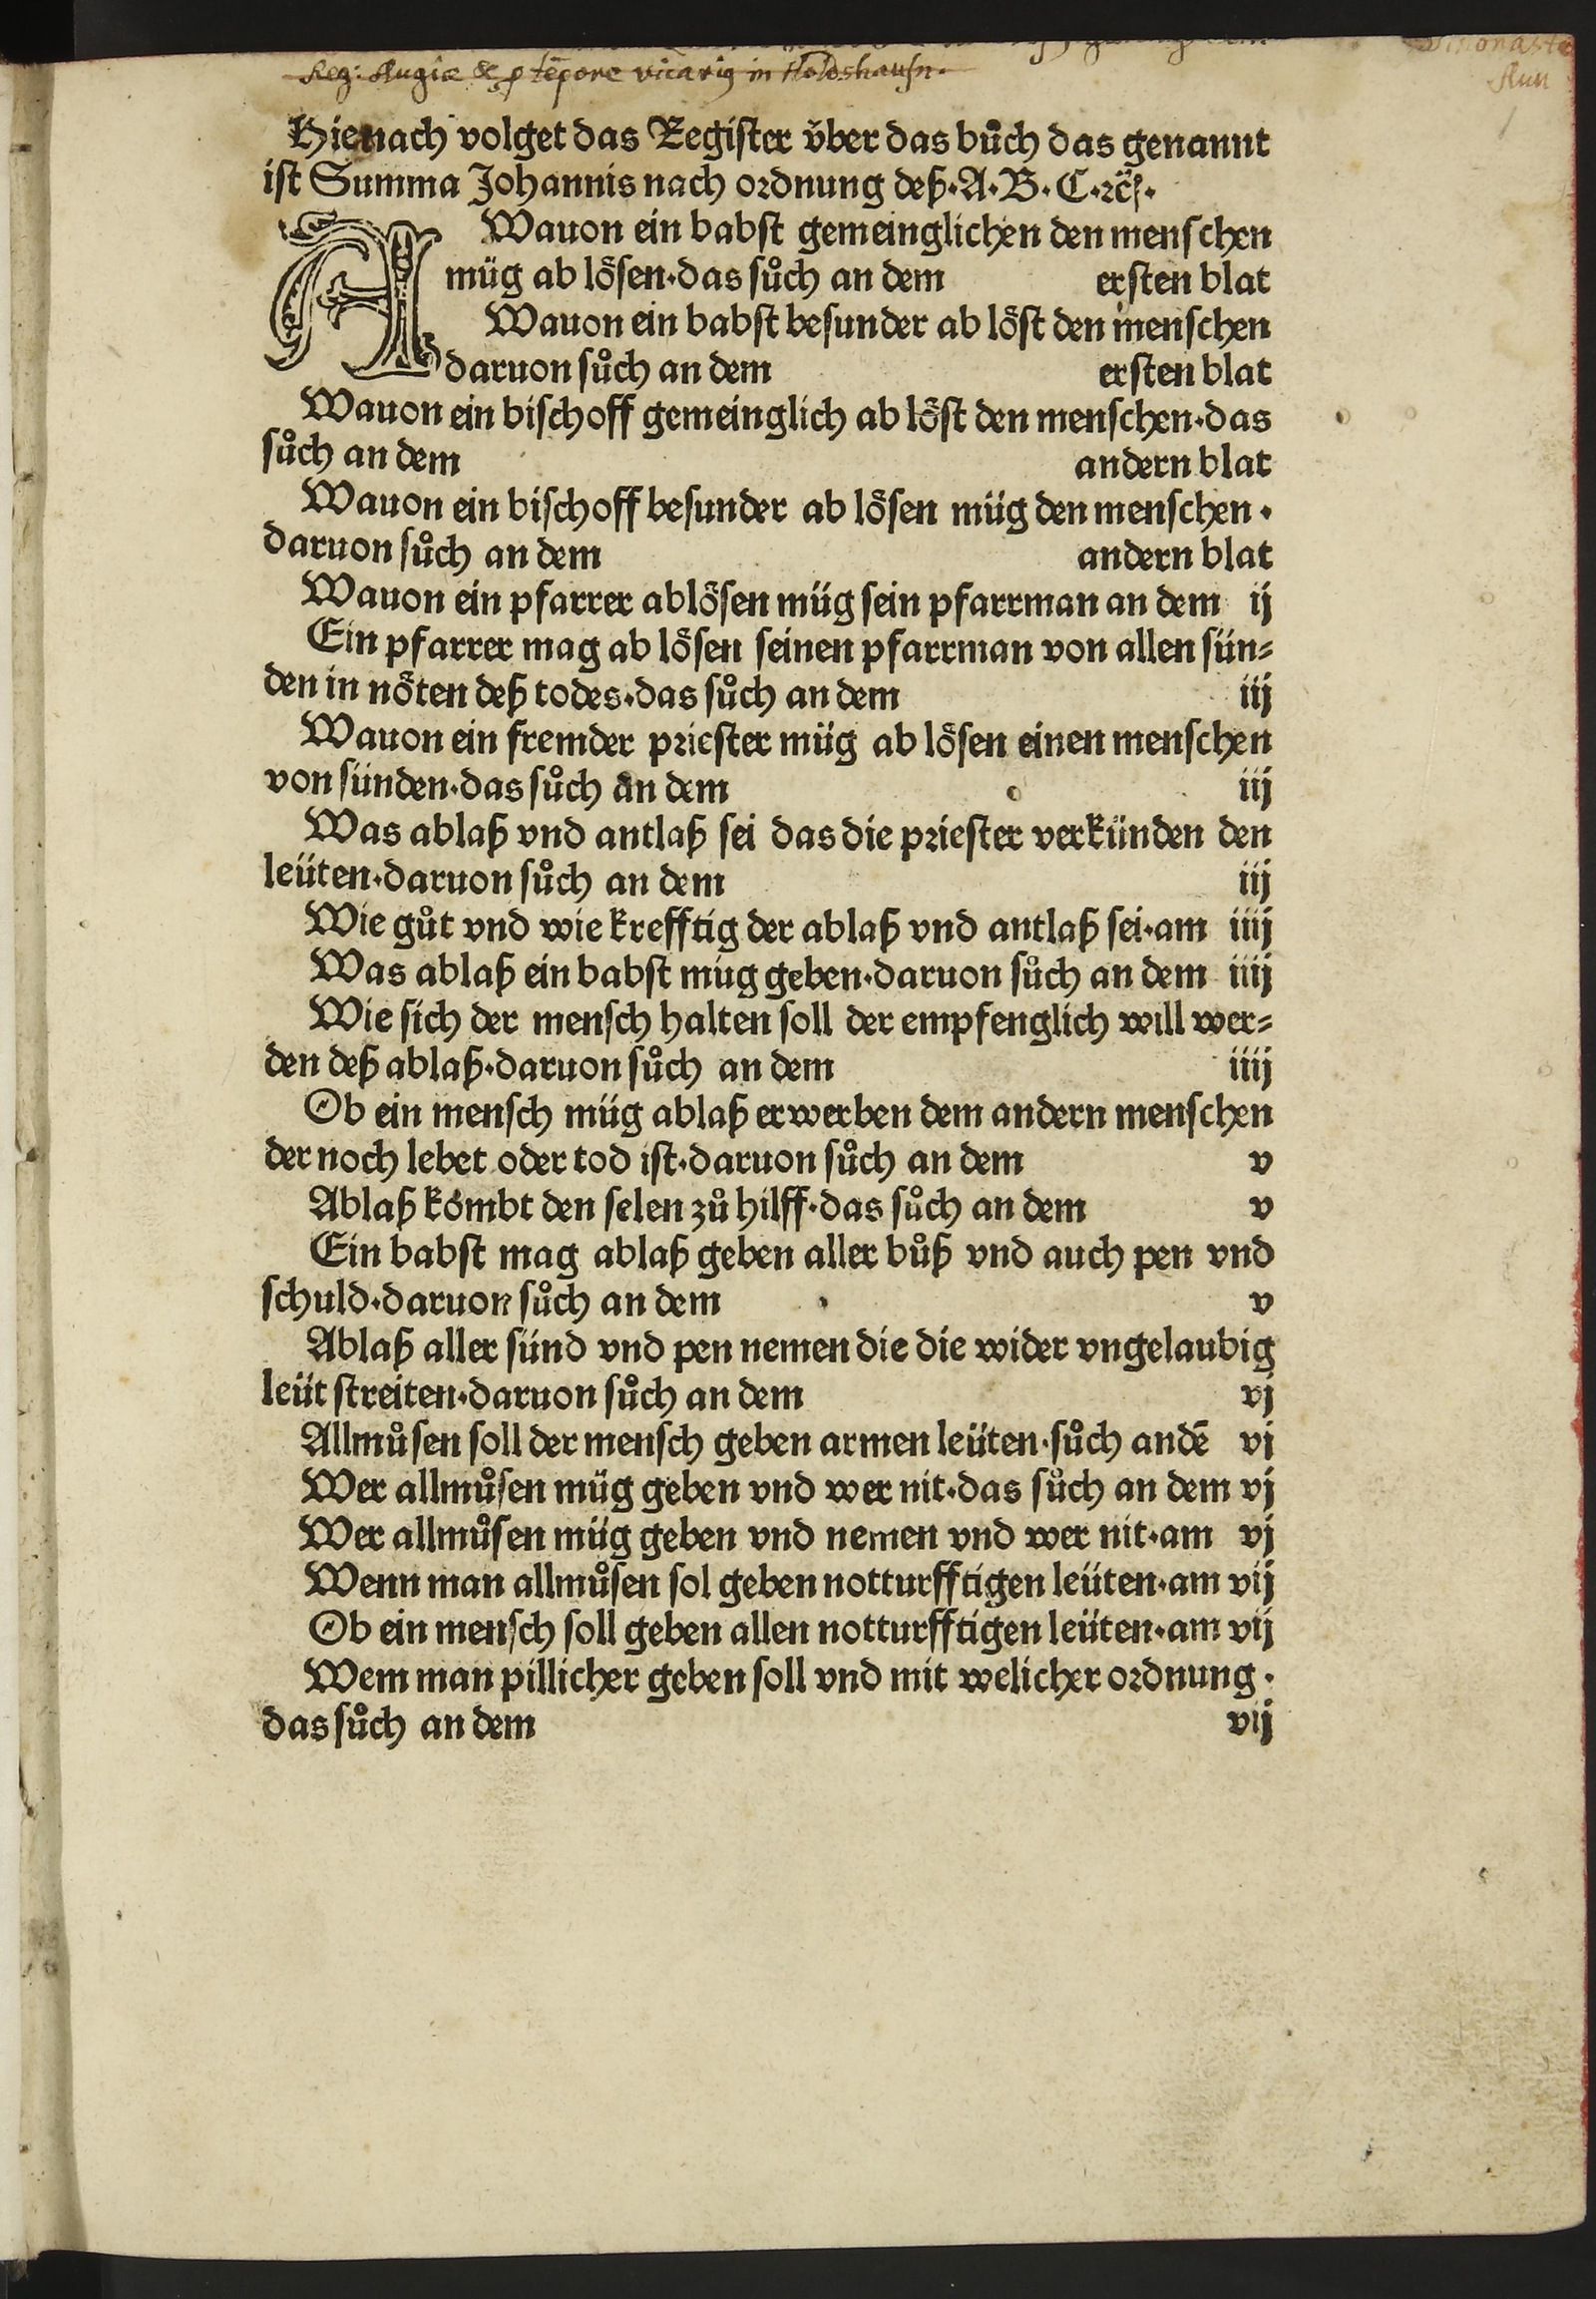 Reg: Augiæ & ꝑ tēpore vicariꝰ in Holdshausn.
Hienach volget das Register v̈ber das bůch das genannt
ist Summa Johannis nach ordnung deß·A·B·C·ꝛc̈.
A Wauon ein babst gemeinglichen den menschen
müg ab lösen·das sůch an dem ersten blat
Wauon ein babst besunder ab löst den menschen
daruon sůch an dem ersten blat
Wauon ein bischoff gemeinglich ab löst den menschen·das
sůch an dem andern blat
Wauon ein bischoff besunder ab lösen müg den menschen·
daruon sůch an dem andern blat
Wauon ein pfarrer ablösen müg sein pfarrman an dem ij
Ein pfarrer mag ab lösen seinen pfarrman von allen sün⸗
den in nöten deß todes·das sůch an dem iij
Wauon ein fremder priester müg ab lösen einen menschen
von sünden·das sůch an dem iij
Was ablaß vnd antlaß sei das die priester verkünden den
leüten·daruon sůch an dem iij
Wie gůt vnd wie krefftig der ablaß vnd antlaß sei·am iiij
Was ablaß ein babst müg geben·daruon sůch an dem iiij
Wie sich der mensch halten soll der empfenglich will wer⸗
den deß ablaß·daruon sůch an dem iiij
Ob ein mensch müg ablaß erwerben dem andern menschen
der noch lebet oder tod ist·daruon sůch an dem v
Ablaß kömbt den selen zů hilff·das sůch an dem v
Ein babst mag ablaß geben aller bůß vnd auch pen vnd
schuld·daruon sůch an dem v
Ablaß aller sünd vnd pen nemen die die wider vngelaubig
leüt streiten·daruon sůch an dem vj
Allmůsen soll der mensch geben armen leüten·sůch an dē vi
Wer allmůsen müg geben vnd wer nit·das sůch an dem vj
Wer allmůsen müg geben vnd nemen vnd wer nit·am vj
Wenn man allmůsen sol geben notturfftigen leüten·am vij
Ob ein mensch soll geben allen notturfftigen leüten·am vij
Wem man pillicher geben soll vnd mit welicher ordnung·
das sůch an dem vij